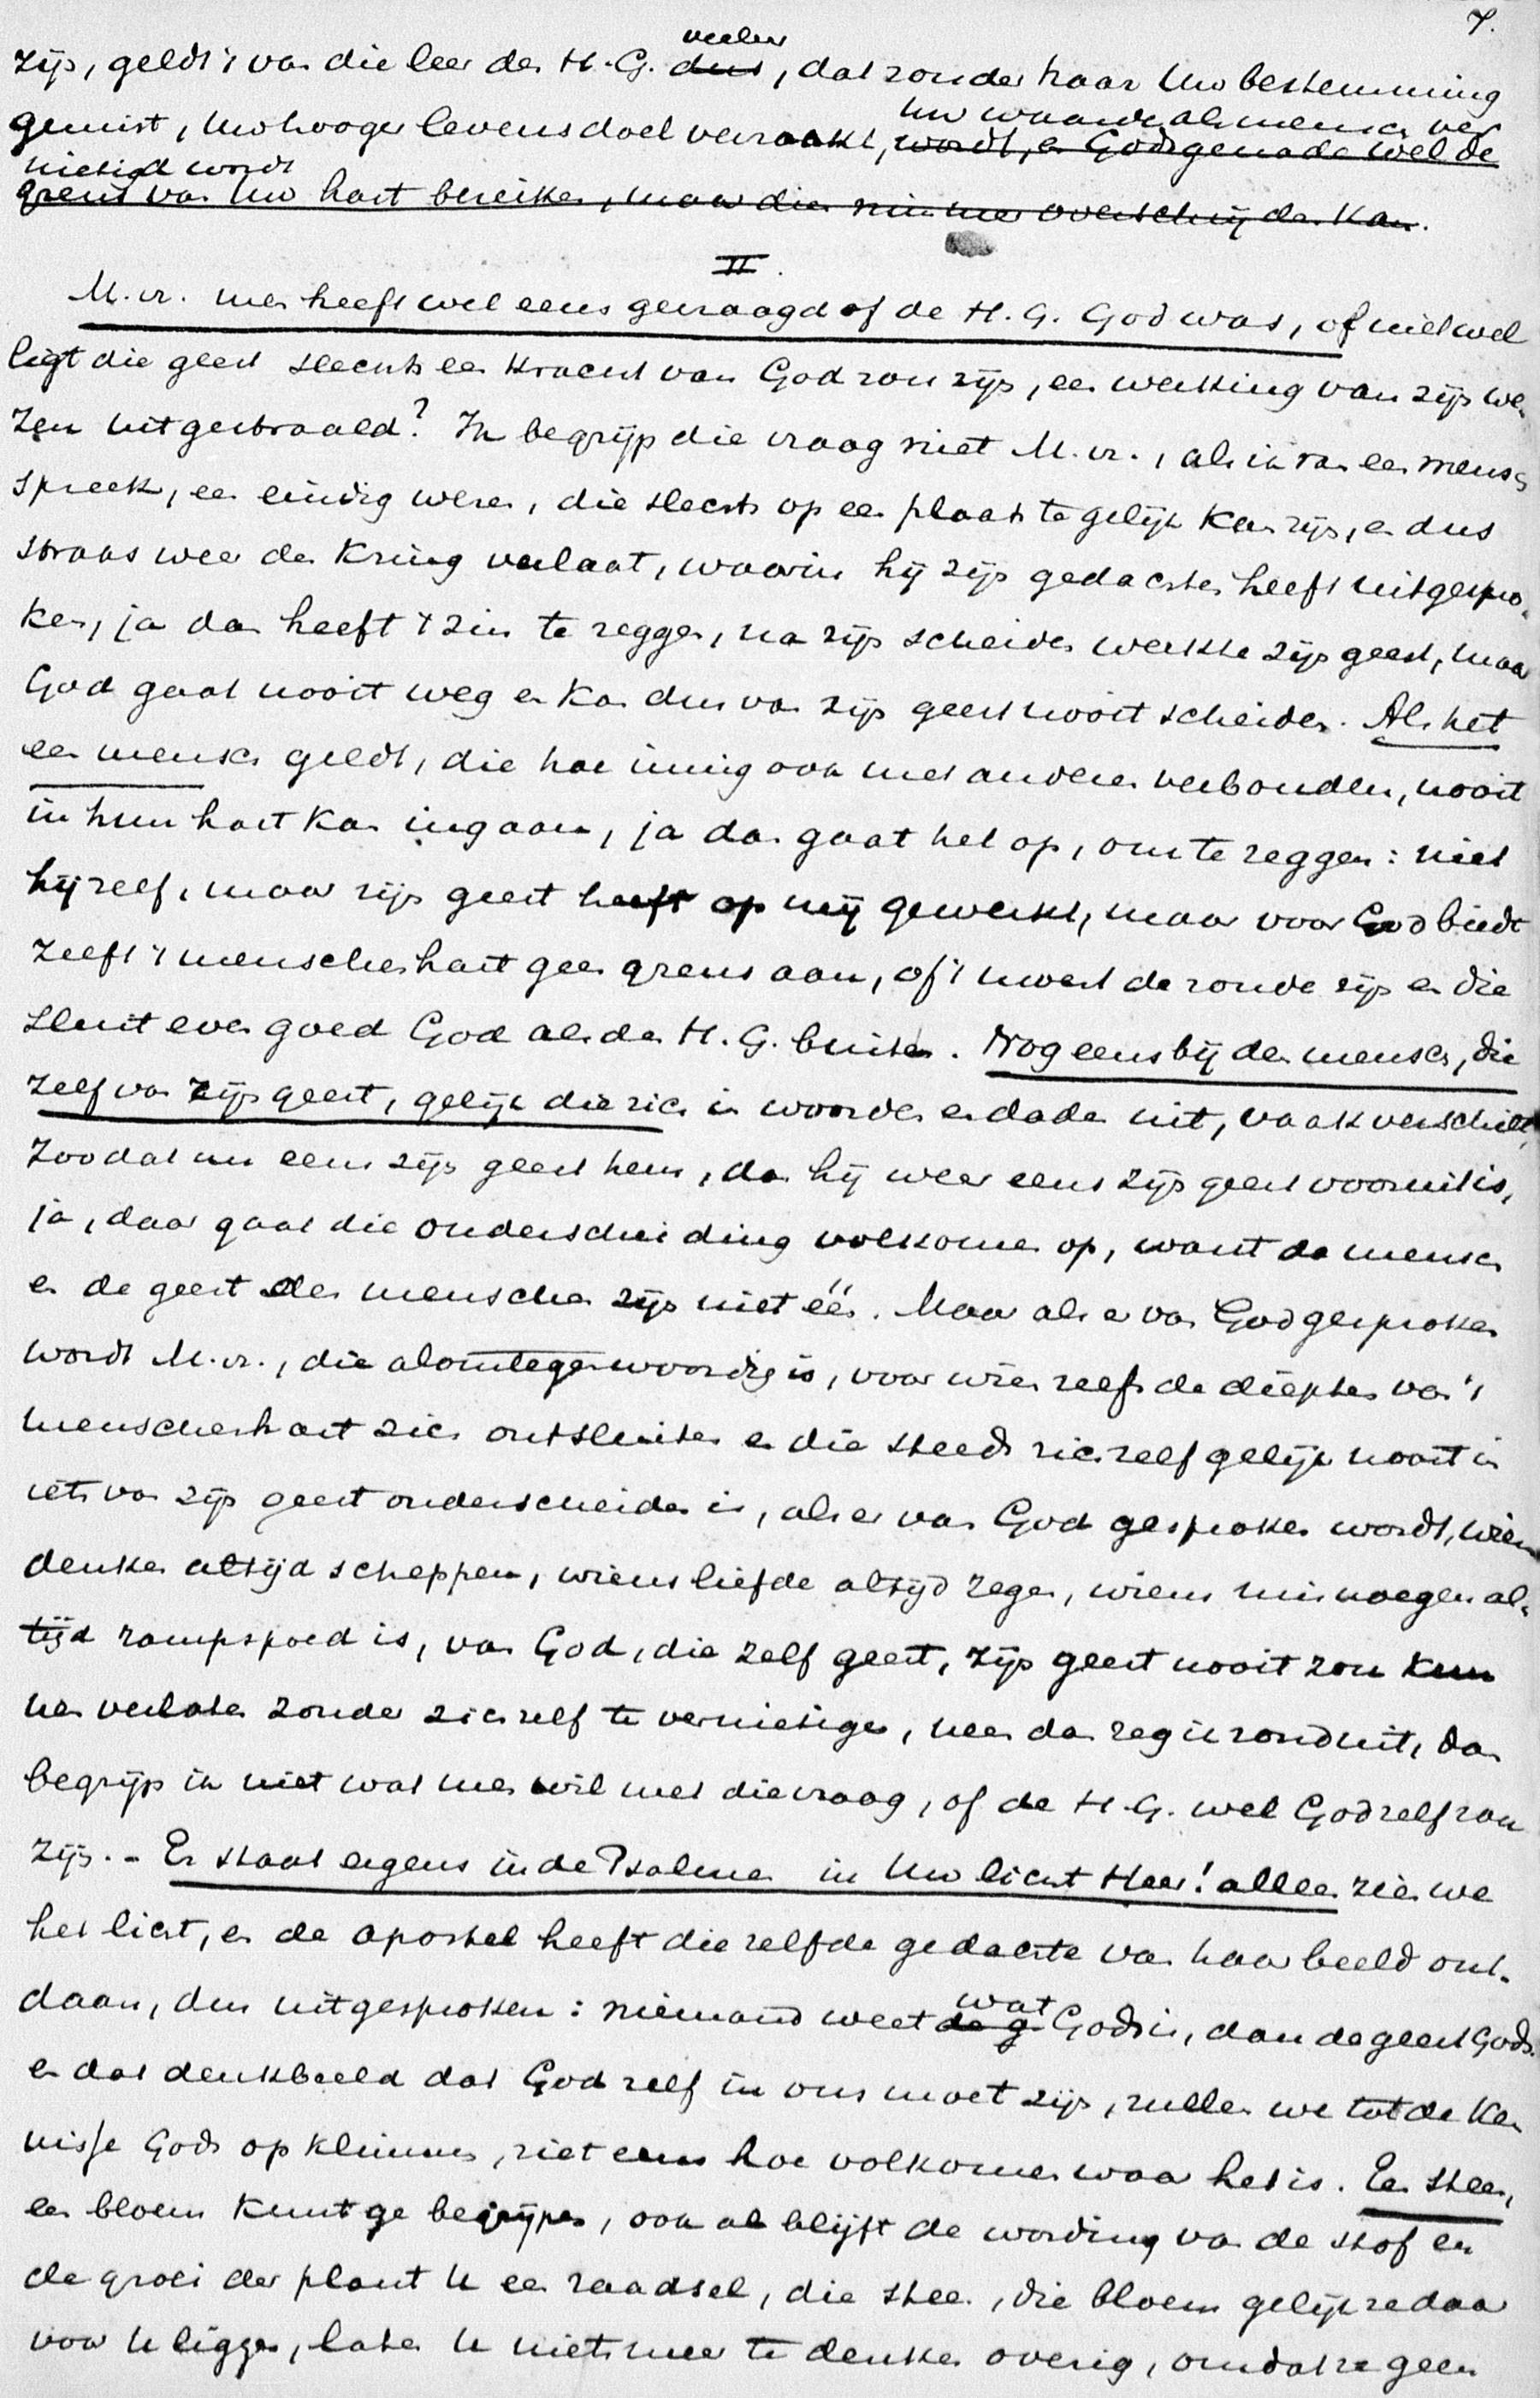 7.
zijn, geldt 't van die leer des H. G. veeleer dus, dat zonder haar Uw bestemming
gemist, Uw hooger levensdoel verzaakt, uw waarde als mensch ver
wordt, en Gods genade wel de
nietigd wordt
grens van Uw hart bereiken, maar dien nimmer overschrijden kan.
II.
M. vr. men heeft wel eens gevraagd of de H. G. God was, of niet wel
ligt die geest slechts een kracht van God zou zijn, een werking van zijn we
zen uitgestraald? Ik begrijp die vraag niet M. vr., als ik van een mensch
spreek, een eindig wezen, die slechts op een plaats te gelijk kan zijn, en dus
straks weer den kring verlaat, waarin hij zijn gedachten heeft uitgespro-
ken, ja dan heeft 't zin te zeggen, na zijn scheiden werkte zijn geest, maar
God gaat nooit weg en kan dus van zijn geest nooit scheiden. Als het
een mensch geldt, die hoe innig ook met anderen verbonden, nooit
in hun hart kan ingaan, ja dan gaat het op, om te zeggen: niet
hij zelf, maar zijn geest heeft op mij gewerkt, maar voor God biedt
zelfs 't menschenhart geen grens aan, of 't moest de zonde zijn en die
sluit even goed God als den H. G. buiten. Nog eens bij den mensch, die
zelf van zijn geest, gelijk die zich in woorden en daden uit, vaak verschilt,
zoodat nu eens zijn geest hem, dan hij weer eens zijn geest vooruit is,
ja, daar gaat die onderscheiding volkomen op, want de mensch
en de geest des menschen zijn niet één. Maar als er van God gesproken
wordt M. vr., die alomtegenwoordig is, voor wien zelfs de diepten van 't
menschenhart zich ontsluiten en die steeds zich zelf gelijk nooit in
iets van zijn geest onderscheiden is, als er van God gesproken wordt, wiens
denken altijd scheppen, wiens liefde altijd zegen, wiens misnoegen al-
tijd rampspoed is, van God, die zelf geest, zijn geest nooit zou kun
nen verlaten zonder zich zelf te vernietigen, neen dan zeg ik ronduit, dan
begrijp ik niet wat men wil met die vraag, of de H. G. wel God zelf zou
zijn. - Er staat ergens in de Psalmen in Uw licht Heer! alleen zien we
het licht, en de apostel heeft die zelfde gedachte van haar beeld ont-
daan, dus uitgesproken: niemand weet de g wat Gods is, dan de geest Gods.
en dat denkbeeld dat God zelf in ons moet zijn, zullen we tot de ken
nisse Gods opklimmen, ziet eens hoe volkomen waar het is. Een steen,
een bloem kunt ge begrijpen, ook al blijft de wording van de stof en
de groei der plant U een raadsel, die steen, die bloem gelijk ze daar
voor U liggen, laten U niets meer te denken overig, omdat ze geen